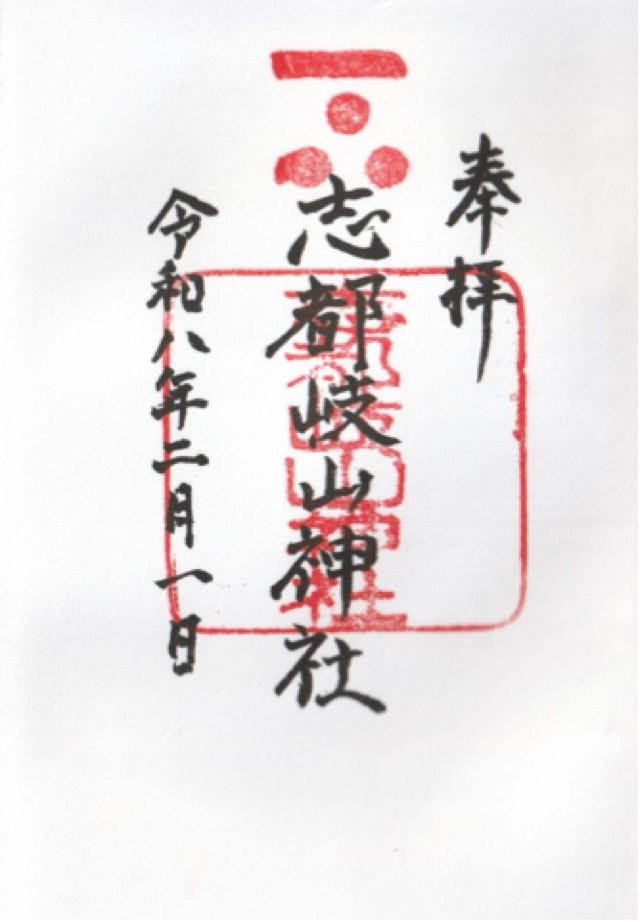 奉拝
志都岐山神社
令和八年二月一日